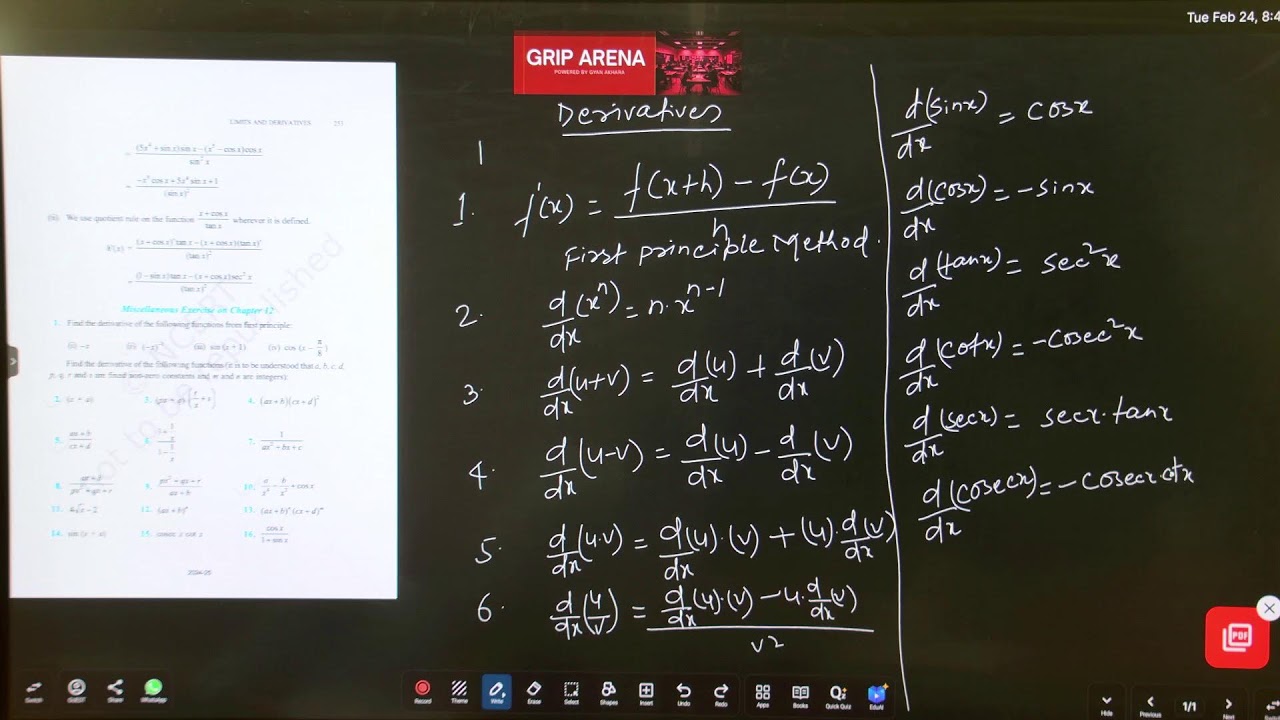 Tue Feb 24, 8:4
GRIP ARENA
POWERED BY GYAN AKHARA
LIMITS AND DERIVATIVES 253
= (5x⁴ + sin x) sin x − (x⁵ − cos x) cos x / sin² x
= −x⁵ cos x + 5x⁴ sin x + 1 / (sin x)²
(ii) We use quotient rule on the function x + cos x / tan x wherever it is defined.
h'(x) = (x + cos x)' tan x − (x + cos x)(tan x)' / (tan x)²
= (1 − sin x) tan x − (x + cos x) sec² x / (tan x)²
Miscellaneous Exercise on Chapter 12
1. Find the derivative of the following functions from first principle:
(i) −x (ii) (−x)⁻¹ (iii) sin (x + 1) (iv) cos (x − π/8)
Find the derivative of the following functions (it is to be understood that a, b, c, d,
p, q, r and s are fixed non-zero constants and m and n are integers):
2. (x + a) 3. (px + q) (r/x + s) 4. (ax + b) (cx + d)²
5. ax + b / cx + d 6. 1 + 1/x / 1 − 1/x 7. 1 / ax² + bx + c
8. ax + b / px² + qx + r 9. px² + qx + r / ax + b 10. a/x⁴ − b/x² + cos x
11. 4√x − 2 12. (ax + b)ⁿ 13. (ax + b)ⁿ (cx + d)ᵐ
14. sin (x + a) 15. cosec x cot x 16. cos x / 1 + sin x
2024-25
Derivatives
1
1. f'(x) = f(x+h) − f(x) / h
First principle Method.
2. d/dx (xⁿ) = n·xⁿ⁻¹
3. d/dx (u+v) = d/dx (u) + d/dx (v)
4. d/dx (u−v) = d/dx (u) − d/dx (v)
5. d/dx (u·v) = d/dx (u)·(v) + (u)·d/dx (v)
6. d/dx (u/v) = d/dx (u)·(v) − u·d/dx (v) / v²
d/dx (sinx) = cosx
d/dx (cosx) = −sinx
d/dx (tanx) = sec²x
d/dx (cotx) = −cosec²x
d/dx (secx) = secx·tanx
d/dx (cosecx) = −cosecx·cotx
PDF
Switch GUEST Share WhatsApp Record Theme Write Erase Select Shapes Insert Undo Redo Apps Books Quick Quiz EduAI Hide Previous 1/1 Next